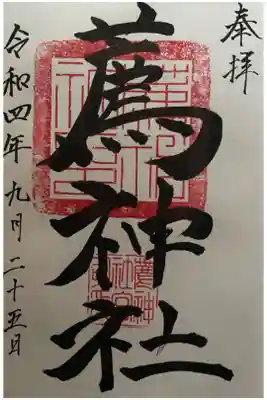 奉拝
薦神社
令和四年九月二十五日